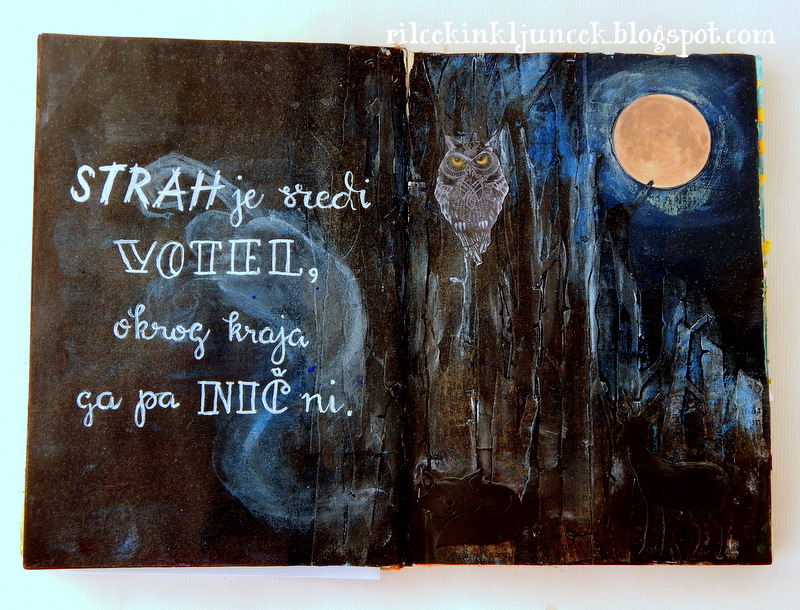 rilcekinkljuncek.blogspot.com
STRAH je sredi
VOTEL,
okrog kraja
ga pa NIČ ni.